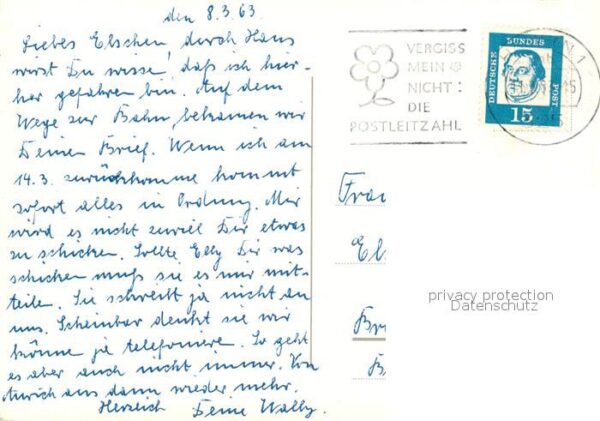 den 8.3.63.
Liebes Elschen, durch Hans
wirst Du wisse, daß ich hier-
her gefahren bin. Auf dem
Wege zur Bahn, bekamen wir
Deinen Brief. Wenn ich am
14.3. zurückkomme kommt
sofort alles in Ordnung. Mir
wird es nicht zuviel Dir etwas
zu schicken. Sollte Elly Dir was
schicken muß sie es mir mit-
teilen. Sie schreibt ja nicht an
uns. Scheinbar denkt sie wir
könne ja telefoniere. So geht
es aber auch nicht immer. Von
aus dann wieder mehr.
Herzlich Deine Wally.
VERGISS
MEIN
NICHT:
DIE
POSTLEITZAHL
DEUTSCHE
BUNDES
POST
15
Frau
El
privacy protection
Datenschutz
Br
B